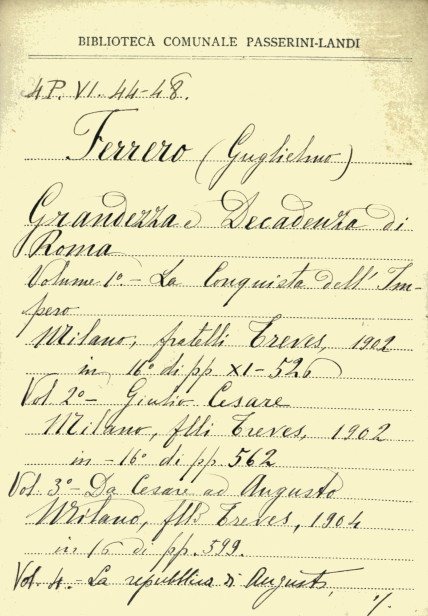 BIBLIOTECA COMUNALE PASSERINI-LANDI
4P. VI. 44-48.
Ferrero (Guglielmo)
Grandezza e Decadenza di
Roma
Volume 1º.- La Conquista dell' Im-
pero
Milano, fratelli Treves, 1902
in 16º di pp XI-526
Vol 2º- Giulio Cesare
Milano, flli Treves, 1902
in -16º di pp 562
Vol. 3º- Da Cesare ad Augusto
Milano, flli Treves, 1904
in 16 di pp. 599.
Vol. 4.- La repubblica di Augusto,
./.